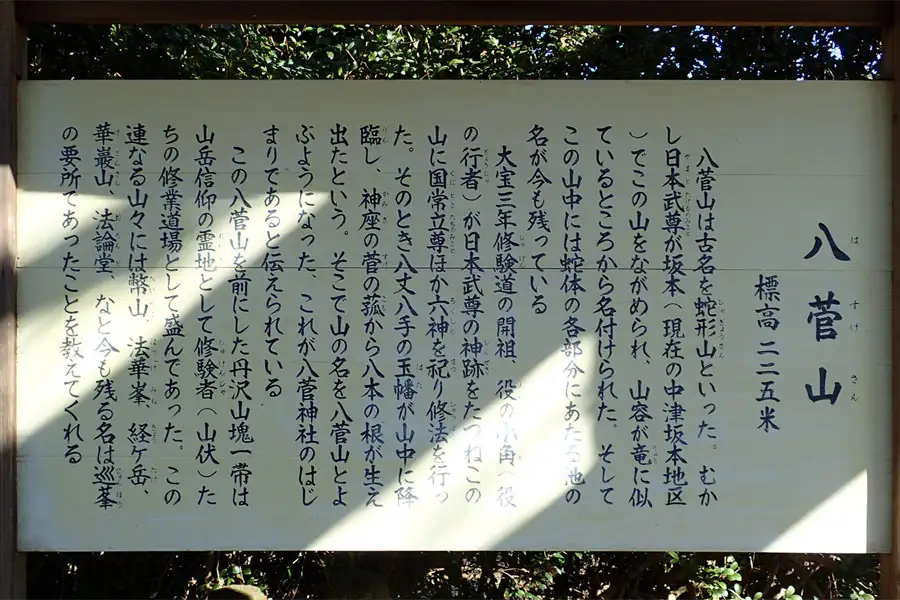 はすげさん
八菅山
標高 二二五米
八菅山は古名を蛇形山といった。むか
し日本武尊が坂本(現在の中津坂本地区
)でこの山をながめられ、山容が竜に似
ているところから名付けられた。そして
この山中には蛇体の各部分にあたる池の
名が今も残っている
大宝三年修験道の開祖、役の小角(役
の行者)が日本武尊の神跡をたづねこの
山に国常立尊ほか六神を祀り修法を行っ
た。そのとき八丈八手の玉幡が山中に降
臨し、神座の菅の菰から八本の根が生え
出たという。そこで山の名を八菅山とよ
ぶようになった、これが八菅神社のはじ
まりであると伝えられている
この八菅山を前にした丹沢山塊一帯は
山岳信仰の霊地として修験者(山伏)た
ちの修業道場として盛んであった。この
連なる山々には幣山、法華峯、経ケ岳、
華巌山、法論堂、など今も残る名は巡峯
の要所であったことを教えてくれる